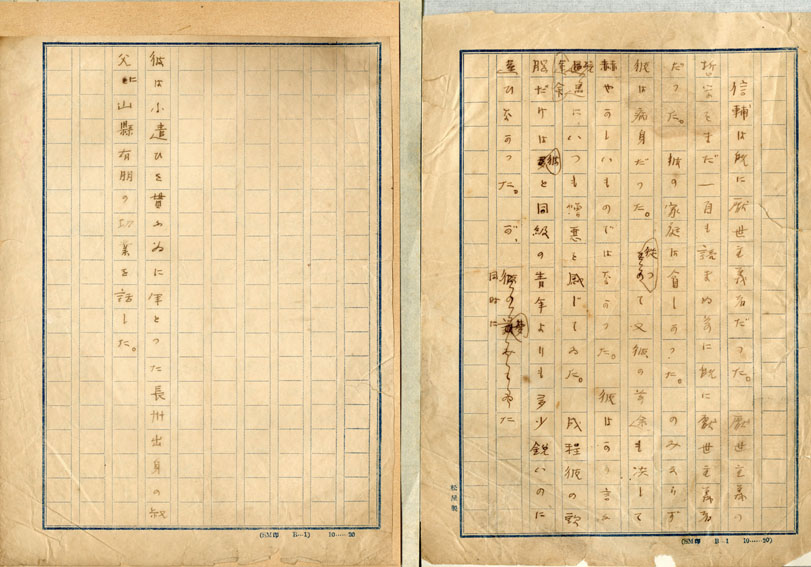 信輔は既に厭世主義者だつた。厭世主義の
哲学をまだ一頁も読まぬ前に既に厭世主義者
だつた。彼の家庭は貧しかつた。のみならず
彼は病身だつた。従つて又彼の前途も決して
赫やかしいものではなかつた。彼はかう言ふ
境遇にいつも憎悪を感じてゐた。成程彼の頭
脳だけは彼と同級の青年よりも多少鋭いのに
違ひなかつた。が、
同時に
彼は小遣ひを貰ふ為に年とつた長州出身の叔
父に山縣有朋の功業を話した。
松屋製
(SM印 B…1) 10……20
(SM印 B…1 10……20)